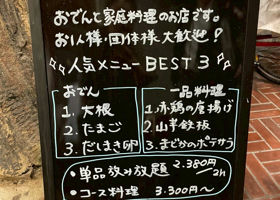 おでんと家庭料理のお店です。
お1人様・団体様大歓迎！
人気メニュー BEST 3
おでん
1. 大根
2. たまご
3. だしまき卵
一品料理
1. 赤鶏の唐揚げ
2. 山芋鉄板
3. まどかのポテサラ
・単品飲み放題 2.380円/2h
・コース料理 3.300円〜